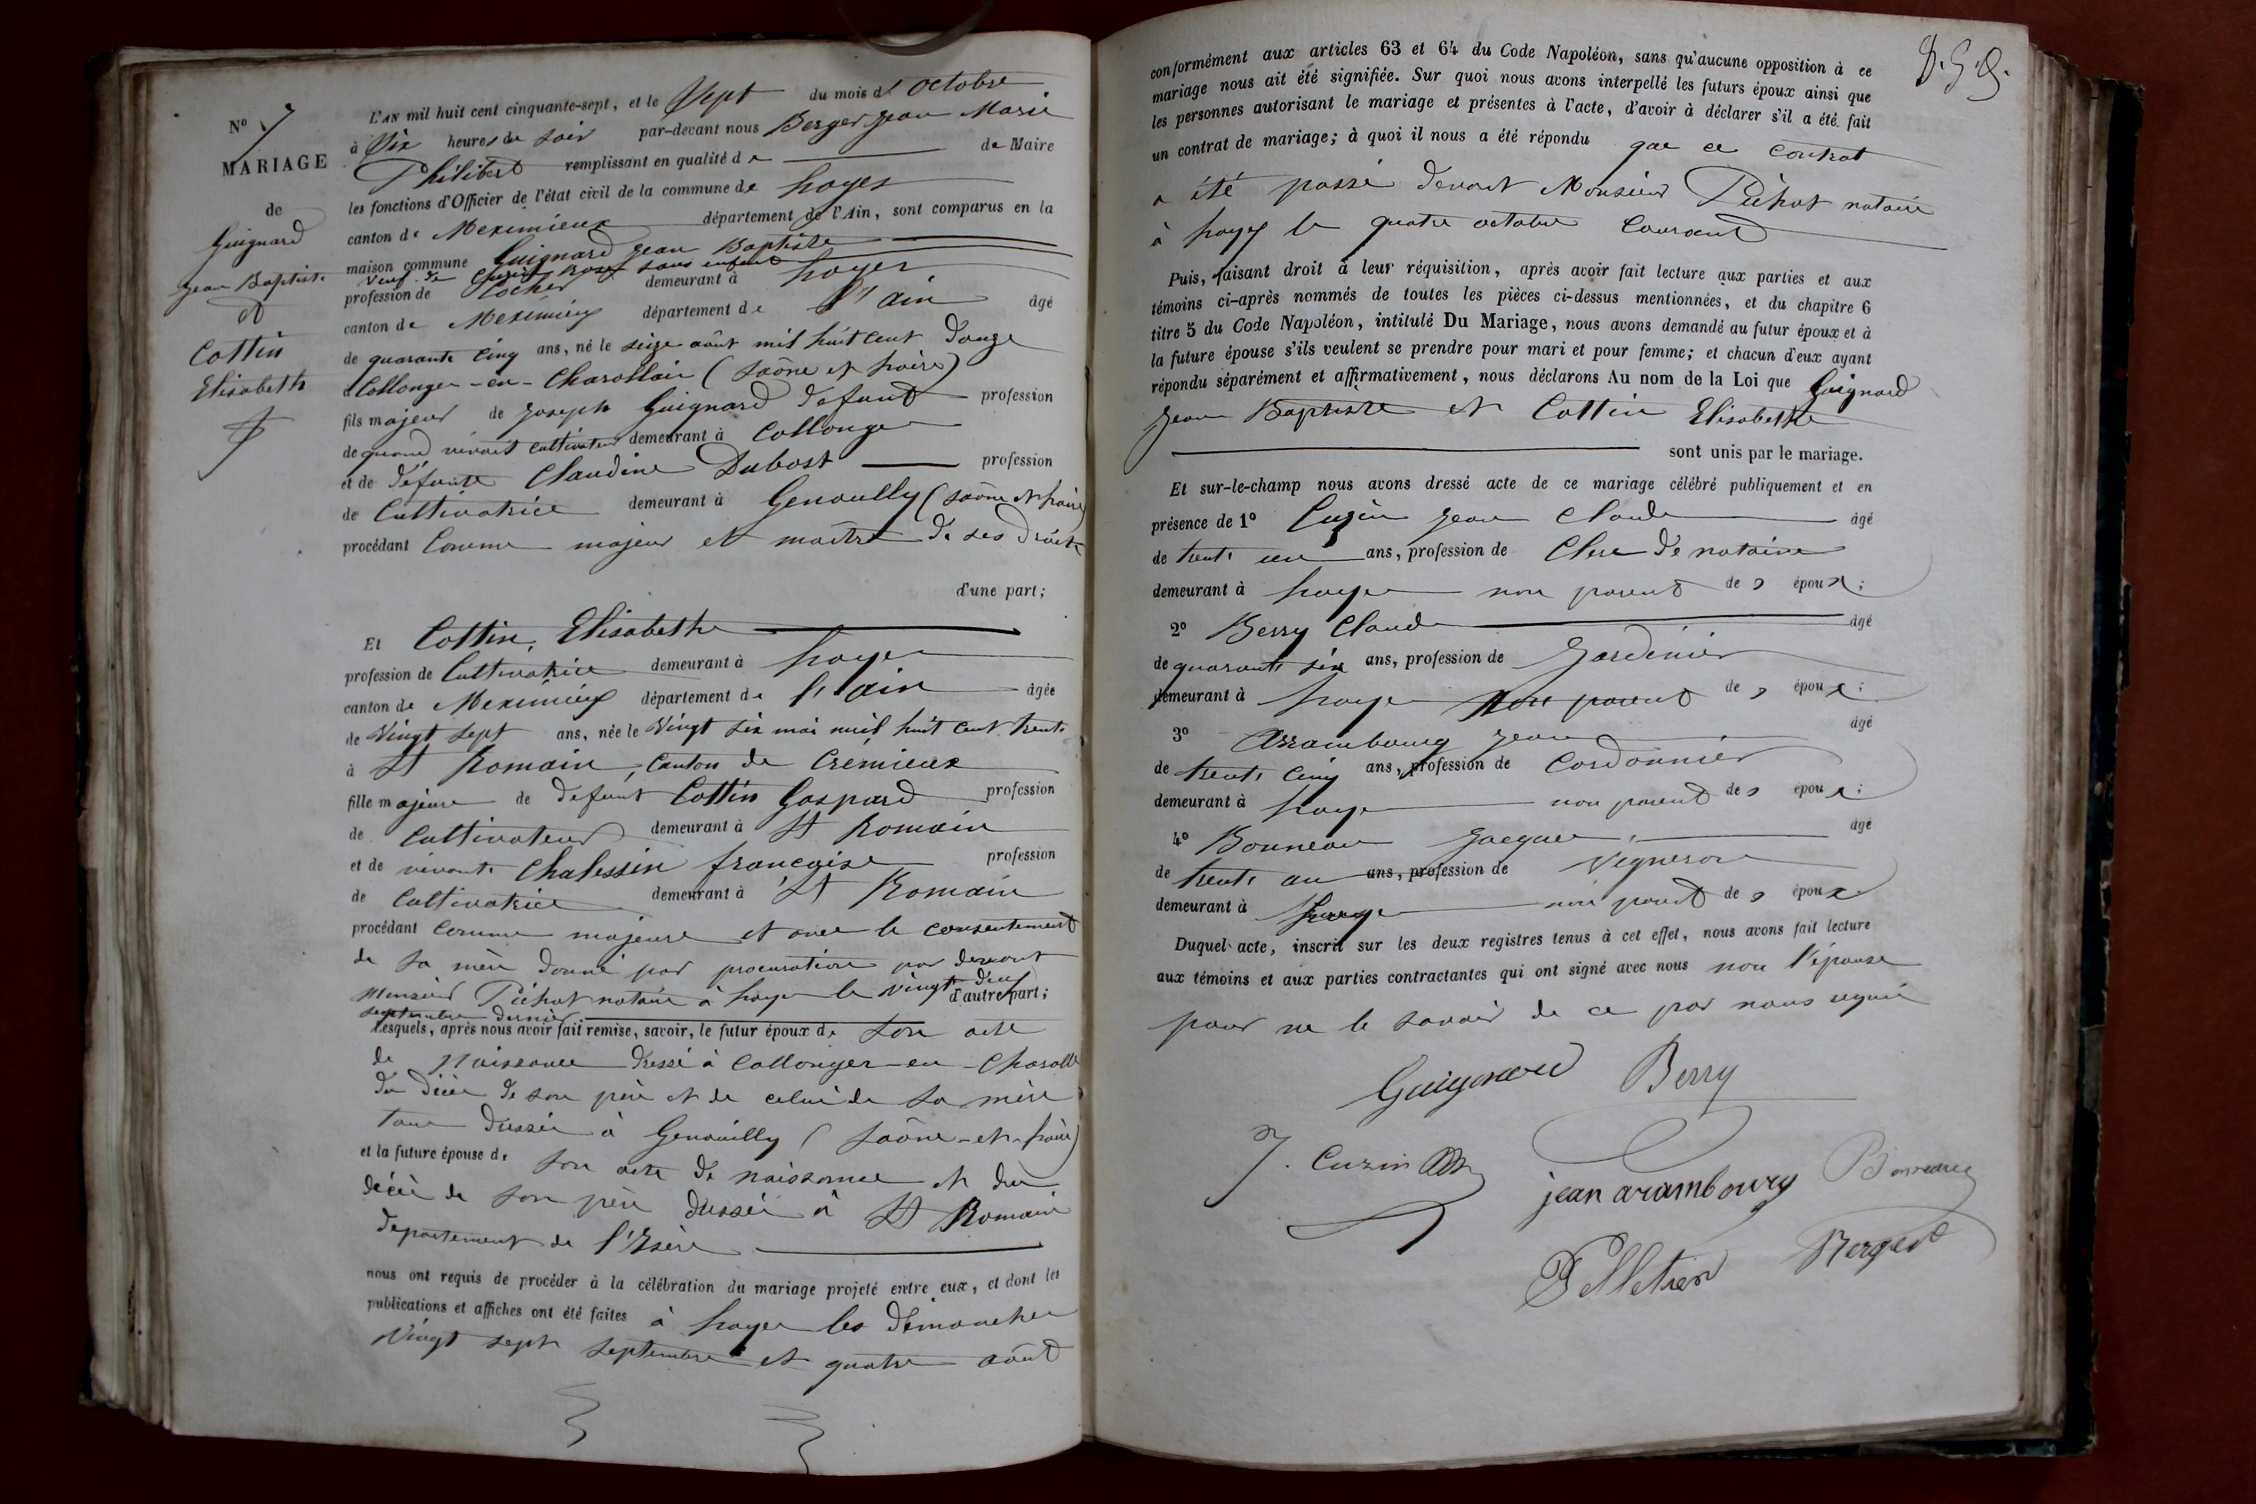 N° 7
MARIAGE
de
Guignard
Jean Baptiste
et
Cottin
Elisabeth
L'AN mil huit cent cinquante-sept, et le Sept du mois d'octobre
à Six heures du soir par-devant nous Berger Jean Marie
Philibert remplissant en qualité de de Maire
les fonctions d'Officier de l'état civil de la commune de Loyes
canton de Meximieux département de l'Ain, sont comparus en la
maison commune Guignard Jean Baptiste
veuf de Rose sans enfant
profession de Cocher demeurant à Loyes
canton de Meximieux département de l'ain âgé
de quarante cinq ans, né le seize août mil huit cent douze
à Collonge-en-Charollais (Saône et Loire)
fils majeur de Joseph Guignard défunt profession
de quand vivait cultivateur demeurant à Collonge
et de défunte Claudine Dubost profession
de Cultivatrice demeurant à Genouilly (Saône et Loire)
procédant Comme majeur et maître de ses droits
d'une part;
Et Cottin, Elisabeth
profession de Cultivatrice demeurant à Loyes
canton de Meximieux département de l'ain âgée
de Vingt sept ans, née le Vingt six mai mil huit cent trente
à St Romain, Canton de Crémieux
fille majeure de défunt Cottin Gaspard profession
de Cultivateur demeurant à St Romain
et de vivante Chalessin françoise profession
de Cultivatrice demeurant à St Romain
procédant Comme majeure et avec le consentement
de sa mère donné par procuration par devant
Monsieur Péchot notaire à Loyes le vingt deux
d'autre part;
septembre dernier
Lesquels, après nous avoir fait remise, savoir, le futur époux de Son acte
de Naissance dressé à Collonges-en-Charolle
du décès de son père et de celui de sa mère
tous dressés à Genouilly (Saône-et-Loire)
et la future épouse de son acte de naissance et du
décès de son père dressés à St Romain
département de l'Isère
nous ont requis de procéder à la célébration du mariage projeté entre eux, et dont les
publications et affiches ont été faites à Loyes les dimanches
Vingt sept septembre et quatre août
conformément aux articles 63 et 64 du Code Napoléon, sans qu'aucune opposition à ce
mariage nous ait été signifiée. Sur quoi nous avons interpellé les futurs époux ainsi que
les personnes autorisant le mariage et présentes à l'acte, d'avoir à déclarer s'il a été fait
un contrat de mariage; à quoi il nous a été répondu que ce contrat
a été passé devant Monsieur Péchot notaire
à Loyes le quatre octobre Courant
Puis, faisant droit à leur réquisition, après avoir fait lecture aux parties et aux
témoins ci-après nommés de toutes les pièces ci-dessus mentionnées, et du chapitre 6
titre 5 du Code Napoléon, intitulé Du Mariage, nous avons demandé au futur époux et à
la future épouse s'ils veulent se prendre pour mari et pour femme; et chacun d'eux ayant
répondu séparément et affirmativement, nous déclarons Au nom de la Loi que Guignard
Jean Baptiste et Cottin Elisabeth
sont unis par le mariage.
Et sur-le-champ nous avons dressé acte de ce mariage célébré publiquement et en
présence de 1° Cuzin Jean Claude âgé
de trente un ans, profession de Clerc de notaire
demeurant à Loyes non parent des époux;
2° Berry Claude âgé
de quarante six ans, profession de Jardinier
demeurant à Loyes non parent des époux;
3° Arrambourg Jean âgé
de trente cinq ans, profession de Cordonnier
demeurant à Loyes non parent des époux;
4° Bonneau Jacques âgé
de trente un ans, profession de Vigneron
demeurant à Loyes non parent des époux
Duquel acte, inscrit sur les deux registres tenus à cet effet, nous avons fait lecture
aux témoins et aux parties contractantes qui ont signé avec nous non l'épouse
pour ne le savoir de ce par nous requis
Guignard Berry
J. Cuzin jean arambourg Bonneau
Pelletier Berger